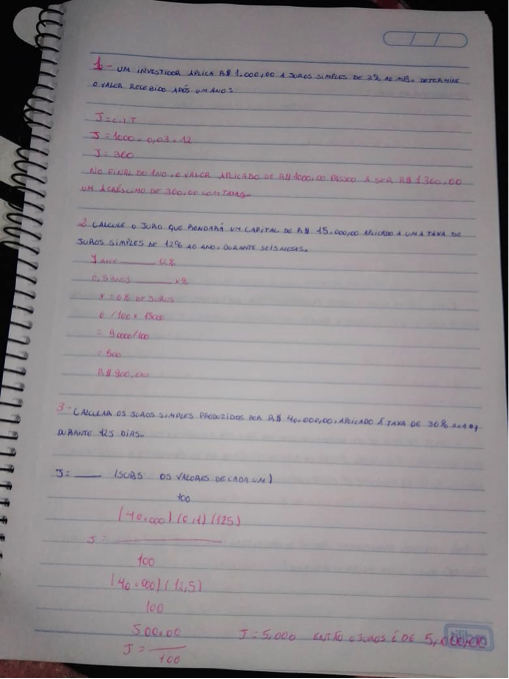 1- UM INVESTIDOR APLICA R$ 1.000,00 A JUROS SIMPLES DE 3% AO MÊS. DETERMINE
O VALOR RECEBIDO APÓS UM ANO:
J = C.I.T
J = 1000. 0,03. 12
J = 360
NO FINAL DO ANO, O VALOR APLICADO DE R$ 1000,00 PASSOU A SER R$ 1360,00
UM ACRÉSCIMO DE 360,00
2. CALCULE O JURO QUE RENDARÁ UM CAPITAL DE R$ 15.000,00 APLICADO A UMA TAXA DE
JUROS SIMPLES DE 12% AO ANO, DURANTE SEIS MESES.
1 ANO
0,5 ANOS
X = 6% DE JUROS
6 /100 x 15000
= 90000/100
= 900
R$ 900,00
3- CALCULAR OS JUROS SIMPLES PRODUZIDOS POR R$ 40.000,00, APLICADO À TAXA DE 30%
DURANTE 125 DIAS.
J = ___ (SUBS: OS VALORES DE CADA UM)
100
(40.000) (0,1) (125)
J =
100
(40.000) (12,5)
100
500,00
J =
100
J = 5,000 ENTÃO O JUROS É DE 5,000,00
tilibra